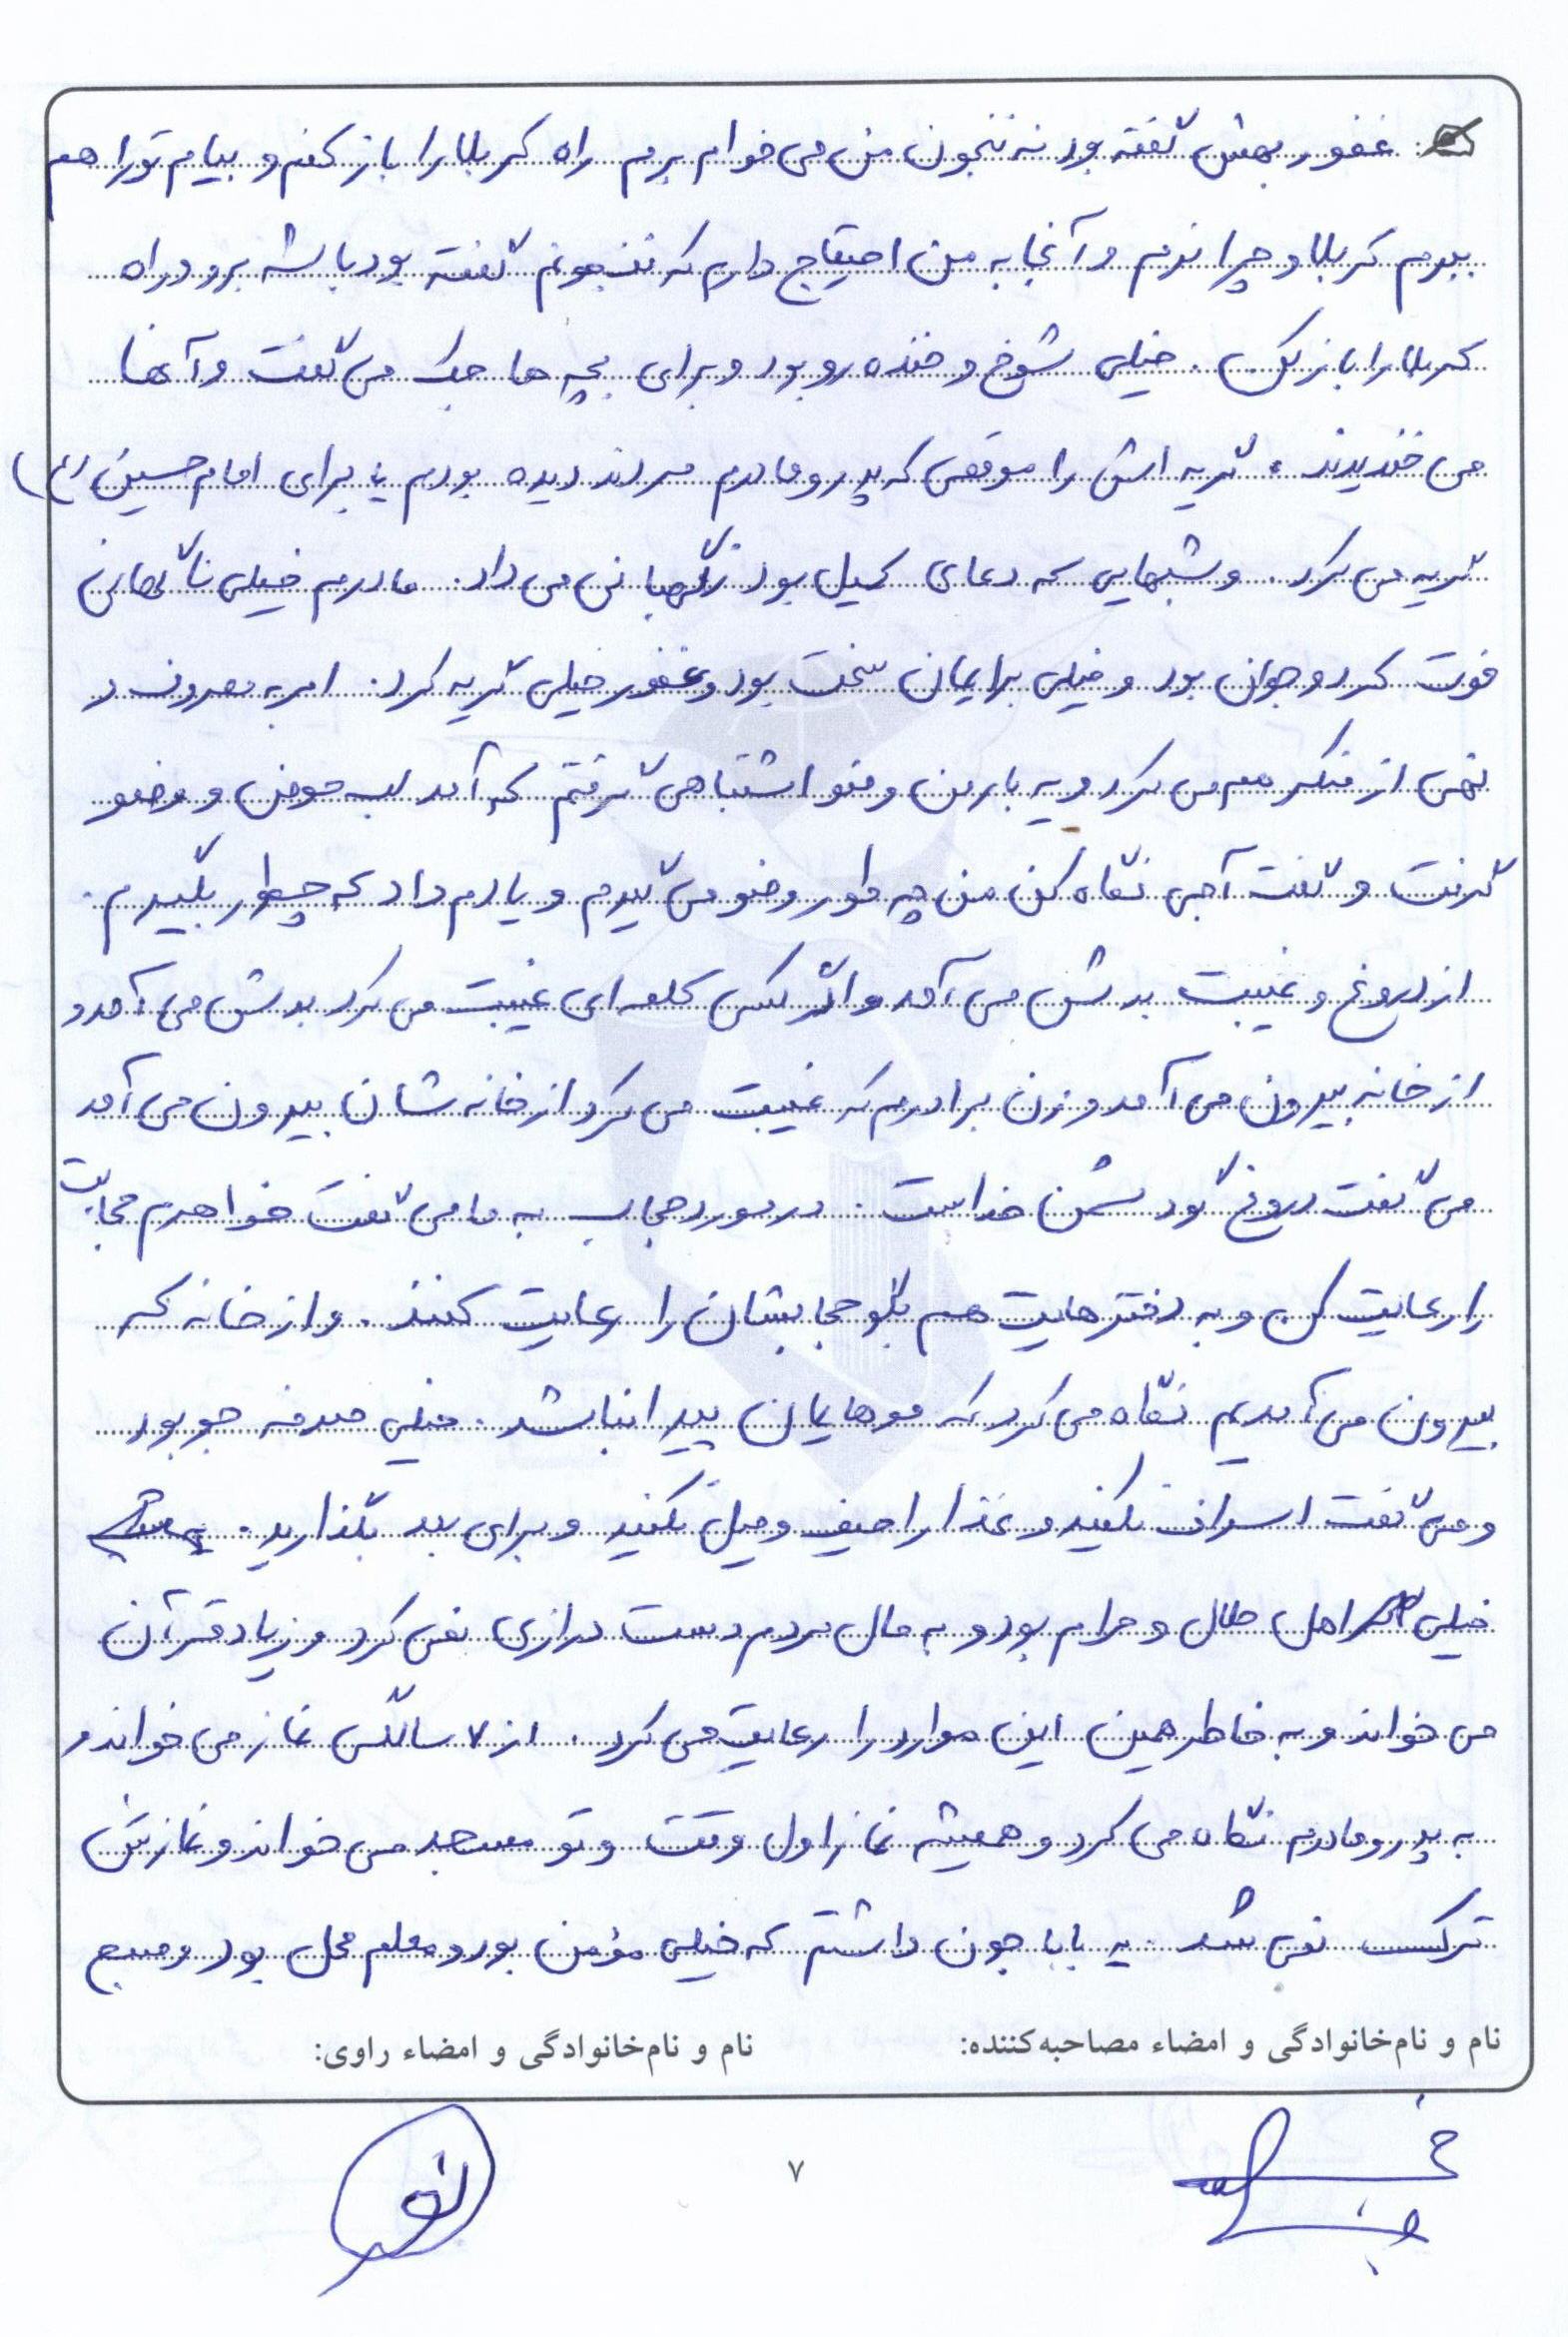 غفور بهش گفته بود نه ننجون من می خوام برم راه کربلا را باز کنم و بیام تو را هم
ببرم کربلا و چرا نرم و آنجا به من احتیاج دارم که ننجونم گفته بود باشه برو و راه
کربلا را باز کن . خیلی شوخ و خنده رو بود و برای بچه ها جک می گفت و آنها
می خندیدند . گریه اش را موقعی که پدر و مادرم مردند دیده بودم یا برای امام حسین (ع)
گریه می کرد . و شبهایی که دعای کمیل بود نگهبانی می داد . مادرم خیلی ناگهانی
فوت کرد و جوان بود و خیلی برایمان سخت بود و غفور خیلی گریه کرد . امر به معروف و
نهی از منکر هم می کرد و یه بار من وضو اشتباهی گرفتم که آمد لب حوض و وضو
گرفت و گفت آجی نگاه کن من چه طور وضو می گیرم و یادم داد که چطور بگیرم .
از دروغ و غیبت بدش می آمد و اگر کسی کلمه ای غیبت می کرد بدش می آمد و
از خانه بیرون می آمد و زن برادرم که غیبت می کرد از خانه شان بیرون می آمد
می گفت دروغ گو دشمن خداست . در مورد حجاب به ما می گفت خواهرم حجابت
را رعایت کن و به دخترهایت هم بگو حجابشان را رعایت کنند . و از خانه که
بیرون می آمدیم نگاه می کرد که موهایمان پیدا نباشد . خیلی صرفه جو بود
و می گفت اسراف نکنید و غذا را حیف و میل نکنید و برای بعد بگذارید .
خیلی اهل حلال و حرام بود و به مال مردم دست درازی نمی کرد و زیاد قرآن
می خواند و به خاطر همین این موارد را رعایت می کرد . از ۷ سالگی نماز می خواند و
به پدر و مادرم نگاه می کرد و همیشه نماز اول وقت و تو مسجد می خواند و نمازش
ترک نمی شد . یه بابا جون داشتم که خیلی مؤمن بود و معلم محل بود و صبح
نام و نام‌خانوادگی و امضاء مصاحبه‌کننده:
نام و نام‌خانوادگی و امضاء راوی:
۷